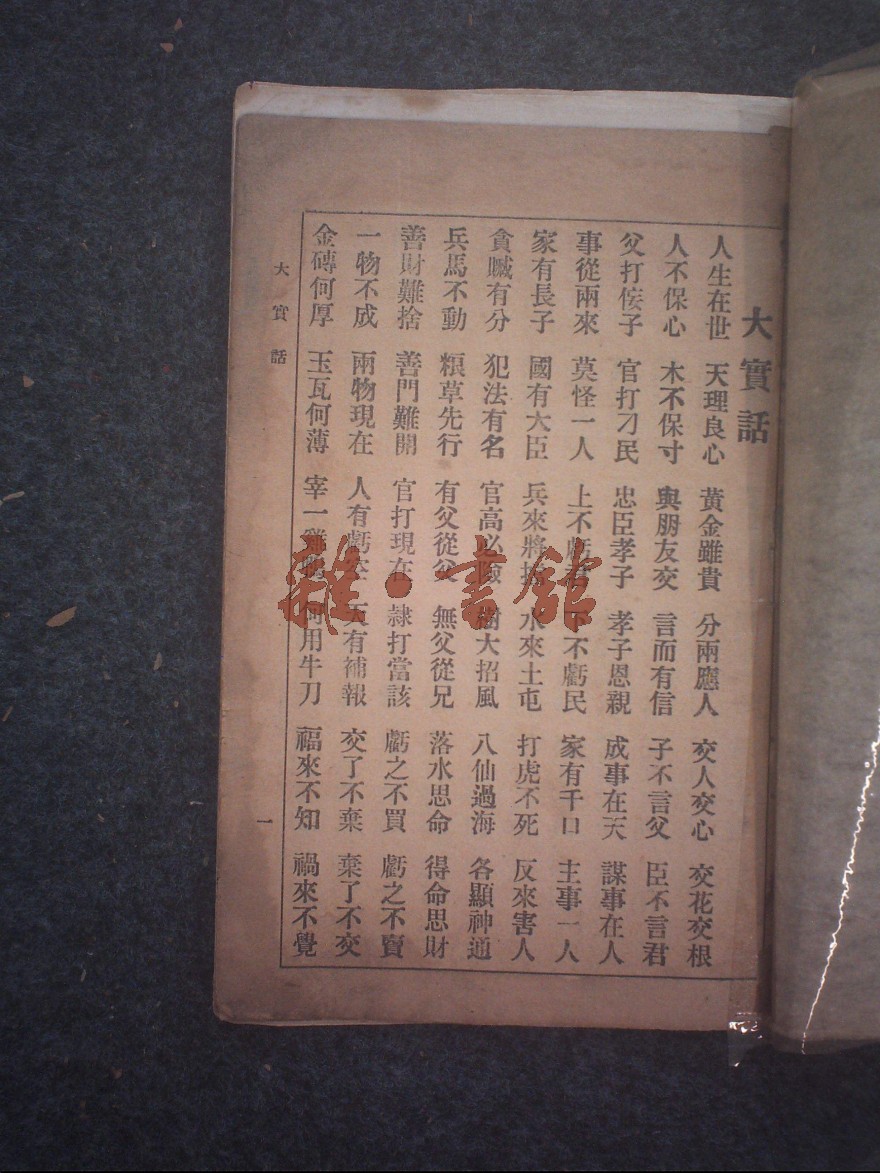 大實話
人生在世 天理良心 黃金雖貴 分兩應人 交人交心 交花交根
人不保心 木不保寸 與朋友交 言而有信 子不言父 臣不言君
父打侫子 官打刁民 忠臣孝子 孝子恩親 成事在天 謀事在人
事從兩來 莫怪一人 上不虧君 下不虧民 家有千口 主事一人
家有長子 國有大臣 兵來將 水來土屯 打虎不死 反來害人
貪贓有分 犯法有名 官高必險 樹大招風 八仙過海 各顯神通
兵馬不動 粮草先行 有父從父 無父從兄 落水思命 得命思財
善財難捨 善門難開 官打現在 隷打當該 虧之不買 虧之不賣
一物不成 兩物現在 人有虧 天有補報 交了不棄 棄了不交
金磚何厚 玉瓦何薄 宰一雞 何用牛刀 福來不知 禍來不覺
大實話
一
雜·書館